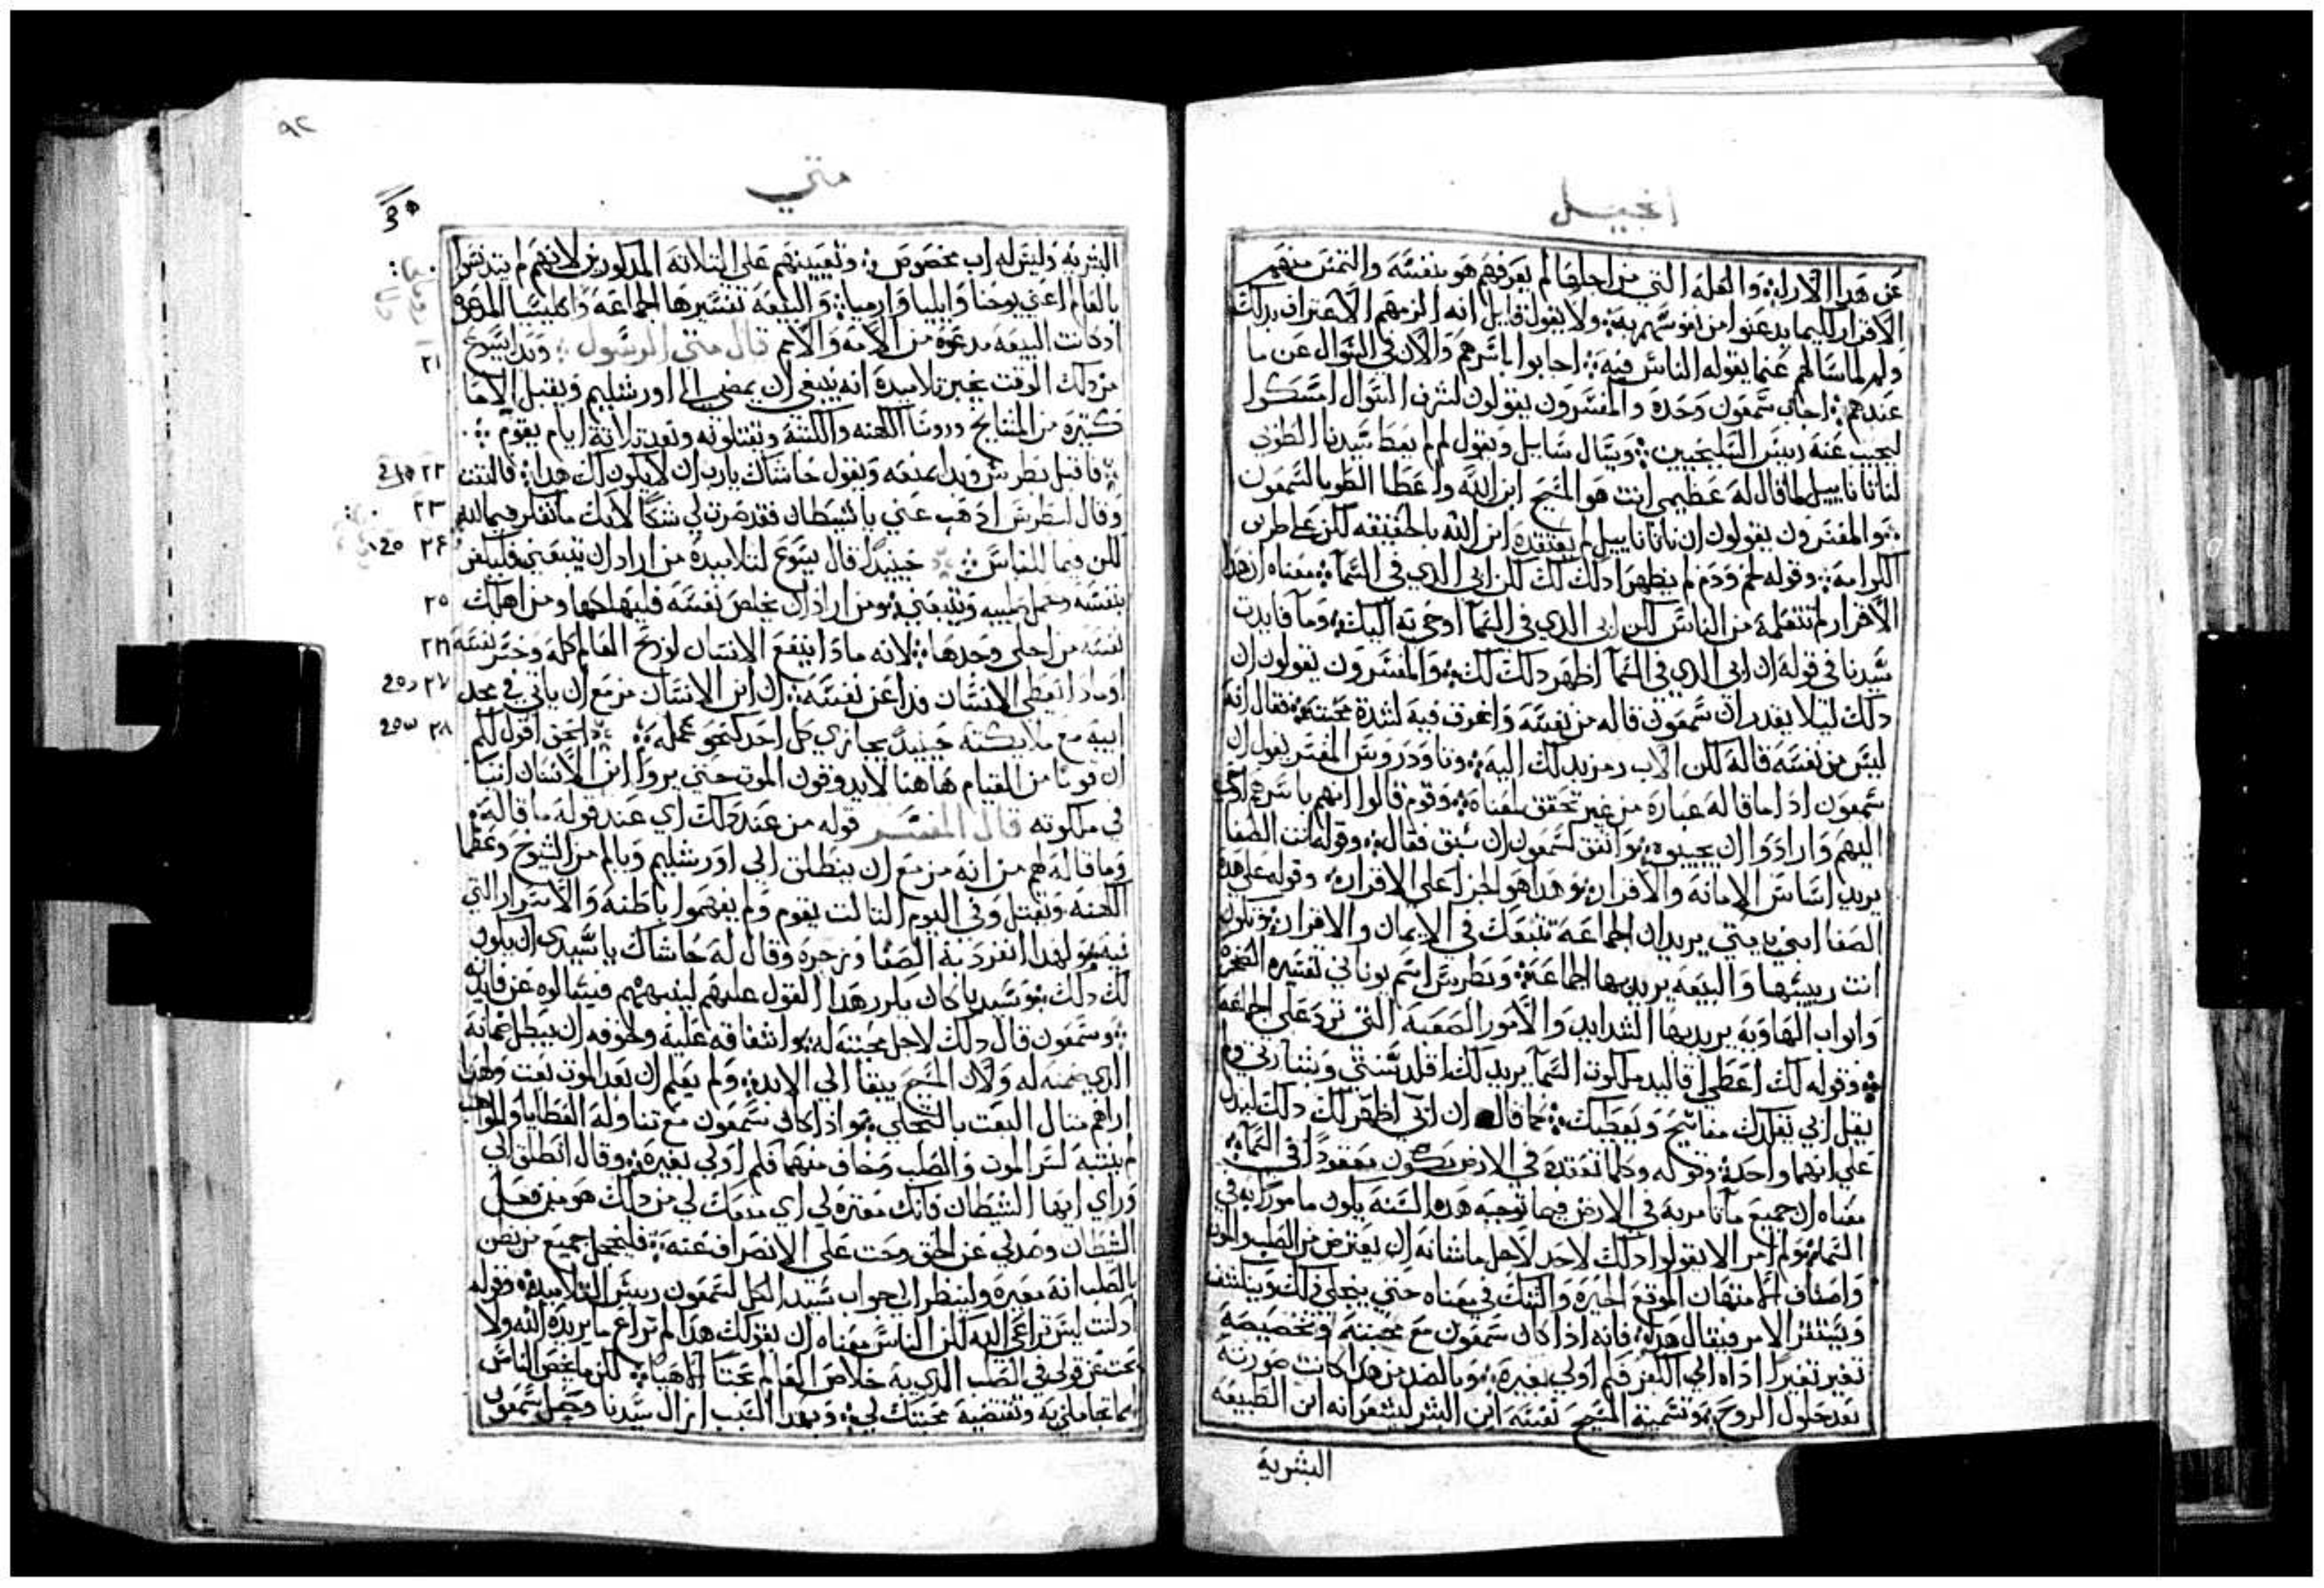 انجيل
عن هدا الاراء والعله التي من اجلها لم يعرفهم هو بنفسه والتمس منهم
الاقرار لكيما يدعنوا من نفوسهم به ولا يقول قايل انه الزمهم الاعتراف بدلك
ولم لما سالهم عما يقوله الناس فيه اجابوا باسرهم والان في السوال عن ما
عندهم اجاب شمعون وحده والمفسرون يقولون لشرف السوال امسكوا
ليجيب عنه رييس السليحيين ويسال سايل ويقول لم لم يعط سيدنا الطوبي
لناثاناييل لما قال له عظيمي انت هو المسيح ابن الله واعطا الطوبا لشمعون
والمفسرون يقولون ان ناثاناييل لم يعتقده ابن الله بالحقيقه لكن علي طريق
الكرامه وقوله لحم ودم لم يظهرا دلك لك لكن ابي الدي في السما معناه ان هدا
الاقرار لم تتعلمه من الناس لكن ابي الدي في السما اوحي به اليك وما فايدت
سيدنا في قوله ان ابي الدي في السما اظهر دلك لك والمفسرون يقولون ان
دلك ليلا يقدر ان شمعون قاله من نفسه واغرق فيه لشدة محبته فقال انه
ليس من نفسه قاله لكن الاب رمز بدلك اليه وتاودوروس المفسر يقول ان
شمعون اذا ما قاله عباره من غير تحقق لمعناه وقوم قالوا انهم باسرهم اوحي
اليهم وارادوا ان يجيبوه واتفق لشمعون ان سبق فقال وقوله انت الصفا
يريد اساس الامانه والاقرار وهدا هو الجزا علي الاقرار وقوله علي هده
الصفا ابني بيعتي يريد ان الجماعه تتبعك في الايمان والاقرار وتكون
انت رييسها والبيعه يريد بها الجماعه وبطرس اسم يوناني تفسيره الصخرة
وابواب الهاويه يريد بها الشدايد والامور الصعبه التي ترد علي الجماعه
وقوله لك اعطي اقاليد ملكوت السما يريد لك اقلد سنتي وبشارتي ولم
يقل ابي يقلدك مفاتيح ويعطيك كما قال ان ابي اظهر لك دلك ليدل
علي انهما واحد وقوله وكلما تعقده في الارض يكون معقودا في السما
معناه ان جميع ما تامر به في الارض فيما توجبه هده السنه يكون مامورا به في
السما ولم امر الا يقولوا دلك لاحد لاجل ما شانه ان يعترض من الصلب والموت
واصناف الامتهان الموقع الحيرة والشك في معناه حتي ينجلي دلك وينكشف
ويستقر الامر فيقال هدا فانه اذا كان شمعون مع محبته وتخصيصه
تغير تغيرا اداه الي الكفر فكم اولي بغيره وبالضد من هدا كانت صورته
بعد حلول الروح وتسمية المسيح نفسه ابن البشر ليشعر انه ابن الطبيعه
البشرية
٩٢
متي
البشريه وليس له اب مخصوص وتعيينهم علي الثلاثة المدكورين لانهم لم يتدنسوا
بالعالم اعني يوحنا وايليا وارميا والبيعه تفسيرها الجماعه والكليسيا المدعوه
ادكانت البيعه مدعوه من الامة والامم قال متي الرسول وبدا يسوع
٢١
من دلك الوقت يخبر تلاميده انه ينبغي ان يمضي الي اورشليم ويقبل الاما
كثيرة من المشايخ وروسا الكهنه والكتبة ويقتلونه وبعد ثلاثة ايام يقوم
٢٢ فاقبل بطرس وبدا يمنعه ويقول حاشاك يارب ان لا يكون لك هدا فالتفت
٢٣ وقال لبطرس ادهب عني يا شيطان فقد صرت لي شكا لانك ما تفكر فيما لله
٢٤ لكن فيما للناس حينيدا قال يسوع لتلاميدة من اراد ان يتبعني فليكفر
٢٥ بنفسه وحمل صليبه ويتبعني ومن اراد ان يخلص نفسه فليهلكها ومن اهلك
٢٦ نفسه من اجلي وجدها لانه مادا ينفع الانسان لو ربح العالم كله وخسر نفسه
٢٧ او مادا يعطي الانسان فدا عن نفسه ان ابن الانسان مزمع ان ياتي في مجد
٢٨ ابيه مع ملايكته حينيد يجازي كل احد كنحو عمله الحق اقول لكم
ان قوما من القيام هاهنا لا يدوقون الموت حتي يروا ابن الانسان اتيا
في ملكوته قال المفسر قوله من عند دلك اي عند قوله ما قاله
وما قاله لهم من انه مزمع ان ينطلق الي اورشليم ويالم من الشيوخ وعظما
الكهنه ويقتل وفي اليوم الثالت يقوم ولم يفهموا باطنه والاسرار التي
فيه ولهدا انفرد به الصفا وزجره وقال له حاشاك يا سيدي ان يكون
لك دلك وسيدنا كان يكرر هدا القول عليهم لينبههم فيسالوه عن فايدته
وشمعون قال دلك لاجل محبته له واشفاقه عليه ولخوفه ان يبطل ضمانه
الدي ضمنه له ولان المسيح يبقا الي الابد ولم يعلم ان بعد الموت بعت ولهدا
اراهم مثال البعت بالتجلي واذا كان شمعون مع تناوله العطايا والمواهب
لم ينتبه لسر الموت والصلب وخاف منهما فكم اولي بغيره وقال انطلق الي
وراي ايها الشيطان فانك معثرة لي اي منعك لي من دلك هو من فعل
الشيطان وصدني عن الحق وحت علي الانصراف عنه فليخجل جميع من يظن
بالصلب انه معيره ولينظر الي جواب سيد الكل لشمعون رييس التلاميد وقوله
ادلست تراعي الله لكن الناس معناه ان بقولك هدا لم تراع ما يريده الله ولا
بحتت عن قولي في الصلب الدي به خلاص العالم لكن ما يخص الناس
مما تجاملني به وتقتضيه محبتك لي وبهدا السبب ابن ال سيدنا وحصل شمعون